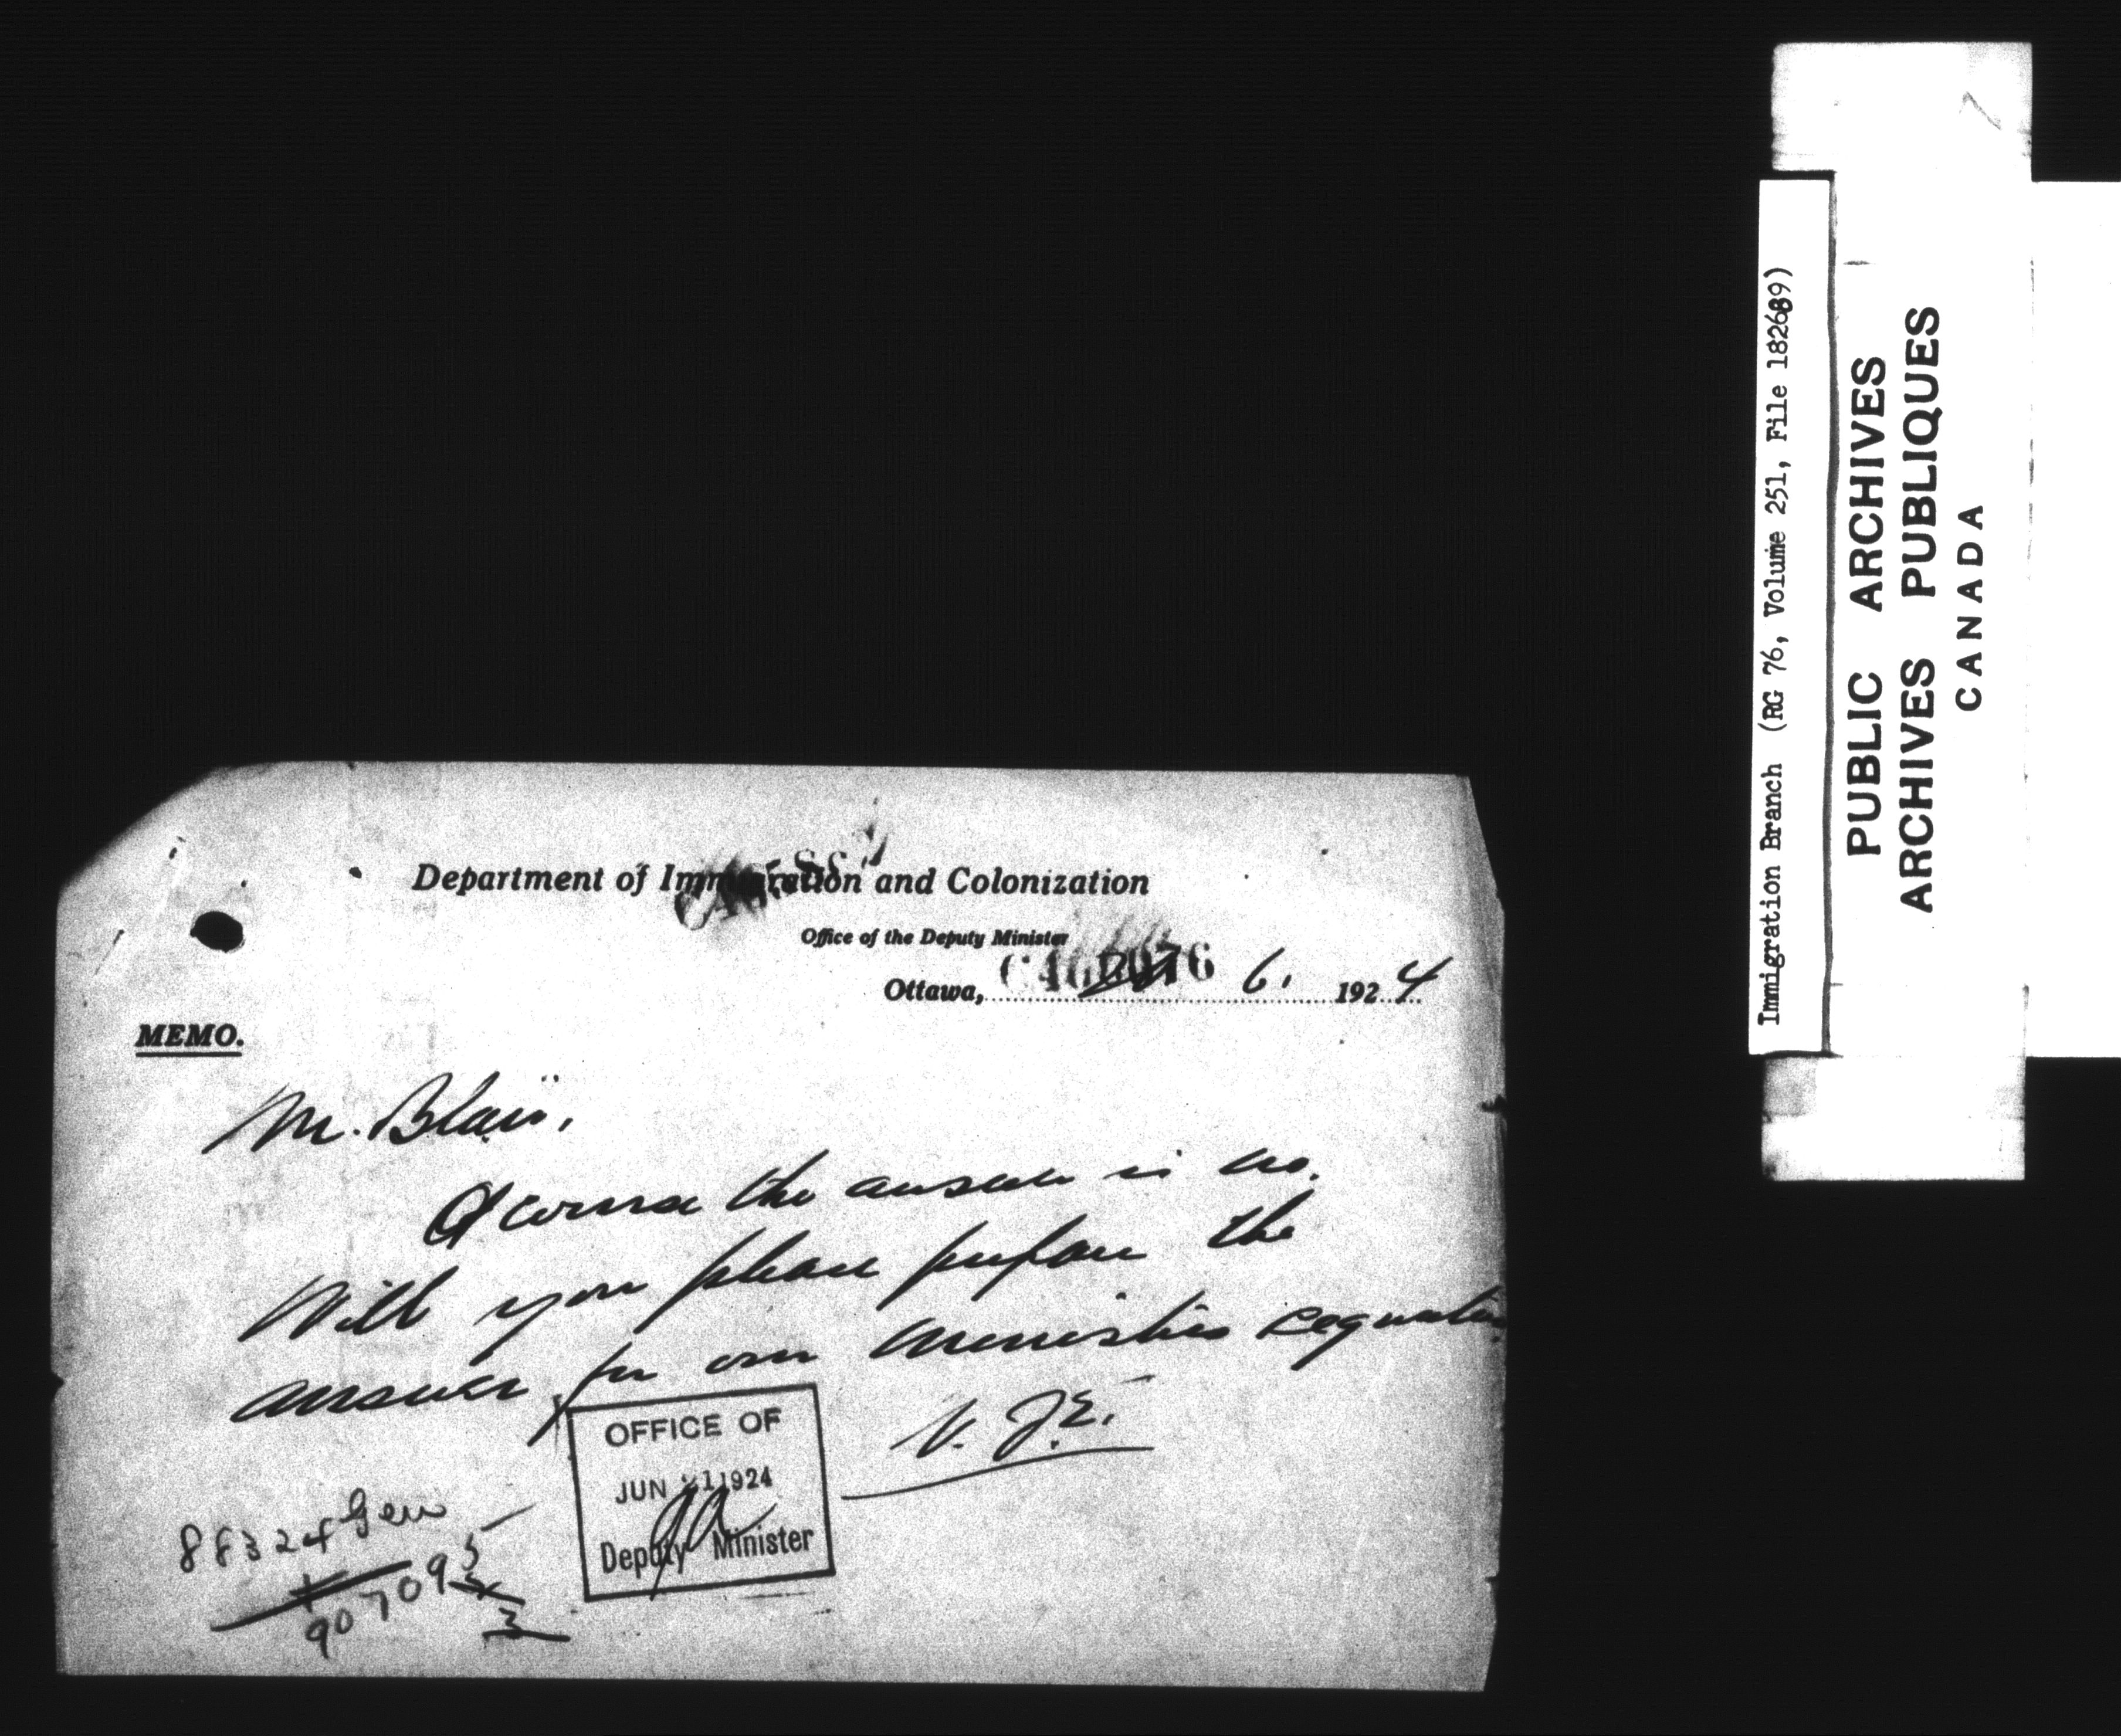 Department of Immigration and Colonization
Office of the Deputy Minister
Ottawa, 6. 1924
MEMO.
Mr. Blair,
Of course the answer is no.
Will you please prepare the
answer for our Minister's signature
W. J. E.
OFFICE OF
JUN 1924
Deputy Minister
88324 Gen
907095
3
Immigration Branch (RG 76, Volume 251, File 182689)
PUBLIC ARCHIVES
ARCHIVES PUBLIQUES
CANADA